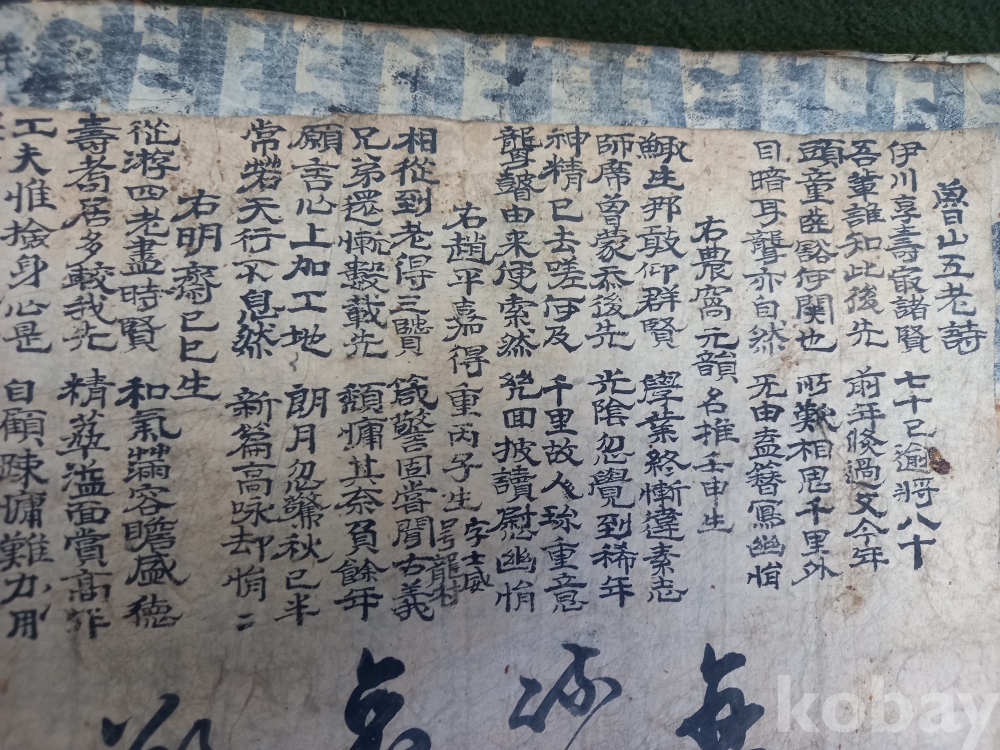 魯山五老詩
伊川享壽冣諸賢 七十已逾將八十
吾輩誰知此後先 前年倏過又今年
頭童齒豁何関也 所歎相思千里外
目暗耳聾亦自然 无由盍簪寫幽悁
右農窩元韻 名推壬申生
鯫生那敢仰群賢 學業終慚違素志
師席曽蒙忝後先 光陰忽覺到稀年
神精已去嗟何及 千里故人珎重意
聾瞽由来便索然 回披讀慰幽悁
右趙平嘉得重丙子生 字士威 号龍村
相從到老得三賢 箴警固當聞古義
兄弟還慚轂載先 頹慵其奈負餘年
願言心上加工地 朗月忽驚秋已半
常若天行不息然 新篇高咏却悁二
右明齋己巳生
從游四老盡時賢 和氣滿容瞻盛德
壽耇居多較我先 精華溢面賞高作
工夫惟撿身心是 自顧疎慵難力用
kobay